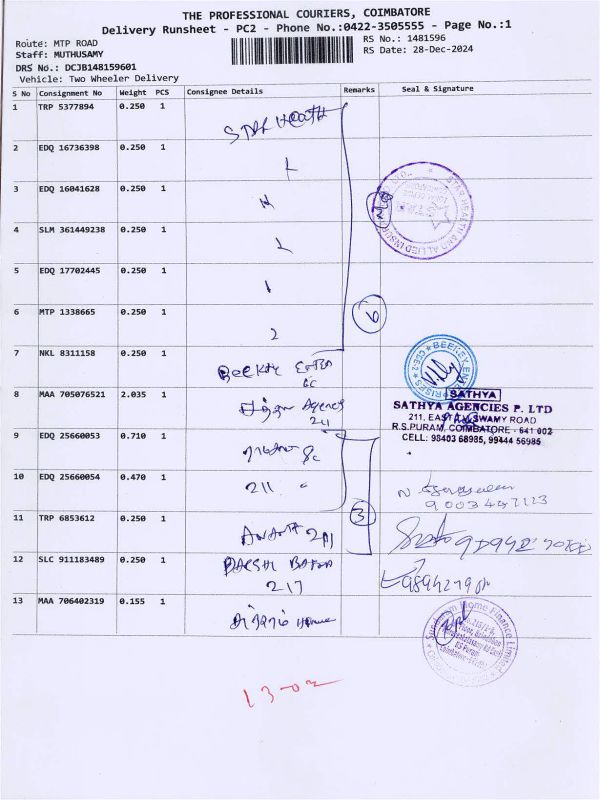 THE PROFESSIONAL COURIERS, COIMBATORE
Delivery Runsheet - PC2 - Phone No.:0422-3505555 - Page No.:1
Route: MTP ROAD
RS No.: 1481596
Staff: MUTHUSAMY
RS Date: 28-Dec-2024
DRS No.: DCJB148159601
Vehicle: Two Wheeler Delivery
S No Consignment No Weight PCS Consignee Details Remarks Seal & Signature
1 TRP 5377894 0.250 1 STAR Health
2 EDQ 16736398 0.250 1
3 EDQ 16041628 0.250 1
4 SLM 361449238 0.250 1
5 EDQ 17702445 0.250 1
6 MTP 1338665 0.250 1
6
7 NKL 8311158 0.250 1
8 MAA 705076521 2.035 1 Agency
211
SATHYA
SATHYA AGENCIES P. LTD
211, EAST T.V. SWAMY ROAD
R.S.PURAM, COIMBATORE - 641 002
CELL: 98403 68985, 99444 56985
9 EDQ 25660053 0.710 1
10 EDQ 25660054 0.470 1 211 "
3
11 TRP 6853612 0.250 1
12 SLC 911183489 0.250 1
217
13 MAA 706402319 0.155 1
STAR HEALTH AND ALLIED INSURANCE
BEEKEY ENTERPRISES
CBE-2
Sundaram Home Finance Limited
13-02